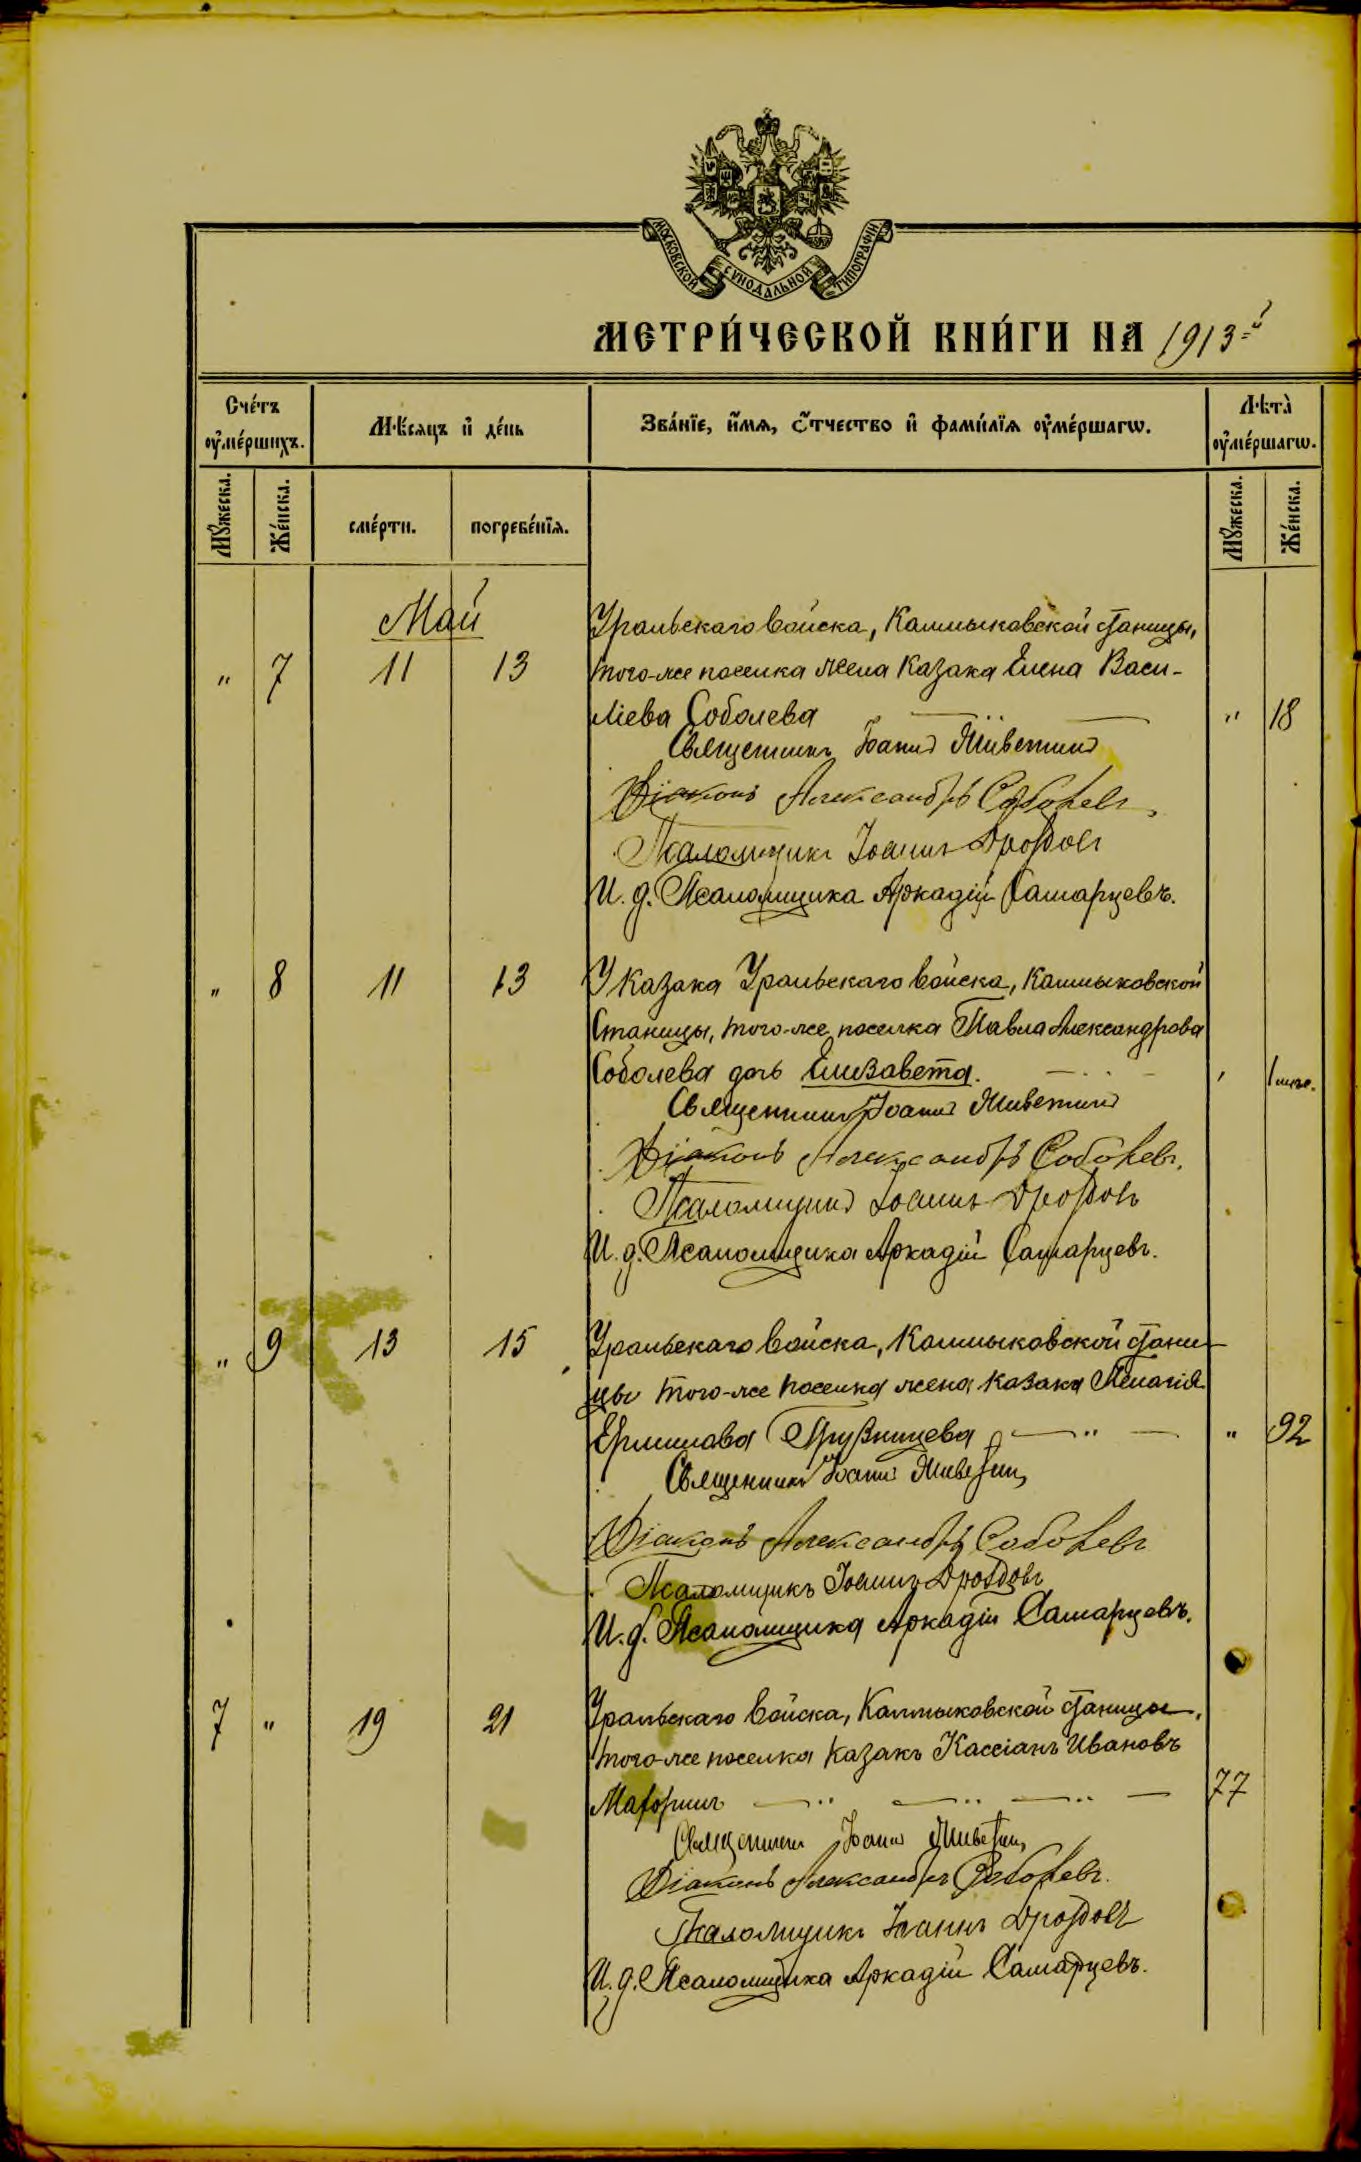 МОСКОВСКОЙ СУНОДАЛЬНОЙ ТИПОГРАФІИ
МЕТРИ́ЧЕСКОЙ КНИ́ГИ НА 1913-й
Сче́тъ оу҆ме́ршихъ.
Мѣ́сяцъ и҆ де́нь
Зва́нїе, и҆́мѧ, ѻ҆́тчество и҆ фами́лїѧ оу҆ме́ршагѡ.
Лѣ́та оу҆ме́ршагѡ.
Мꙋ́жеска.
Же́нска.
сме́рти.
погребе́нїѧ.
Мꙋ́жеска.
Же́нска.
Май
Уральскаго войска, Калмыковской станицы,
" 7 11 13 того-же поселка жена казака Елена Васи-
ліева Соболева " 18
Священникъ Іоаннъ
Діаконъ Александръ Соболевъ.
Псаломщикъ Іоаннъ Дроздовъ
И. д. Псаломщика Аркадій Самарцевъ.
" 8 11 13 У казака Уральскаго войска, Калмыковской
станицы, того-же поселка Павла Александрова
Соболева дочь Елизавета. 1
Священникъ Іоаннъ
Діаконъ Александръ Соболевъ.
Псаломщикъ Іоаннъ Дроздовъ
И. д. Псаломщика Аркадій Самарцевъ.
" 9 13 15 Уральскаго войска, Калмыковской стани-
цы того-же поселка жена казака Пелагія
Ермилова " 92
Священникъ Іоаннъ
Діаконъ Александръ Соболевъ
Псаломщикъ Іоаннъ Дроздовъ
И. д. Псаломщика Аркадій Самарцевъ.
7 " 19 21 Уральскаго войска, Калмыковской станицы,
того-же поселка казакъ Кассіанъ Ивановъ
77
Священникъ Іоаннъ
Діаконъ Александръ Соболевъ.
Псаломщикъ Іоаннъ Дроздовъ
И. д. Псаломщика Аркадій Самарцевъ.